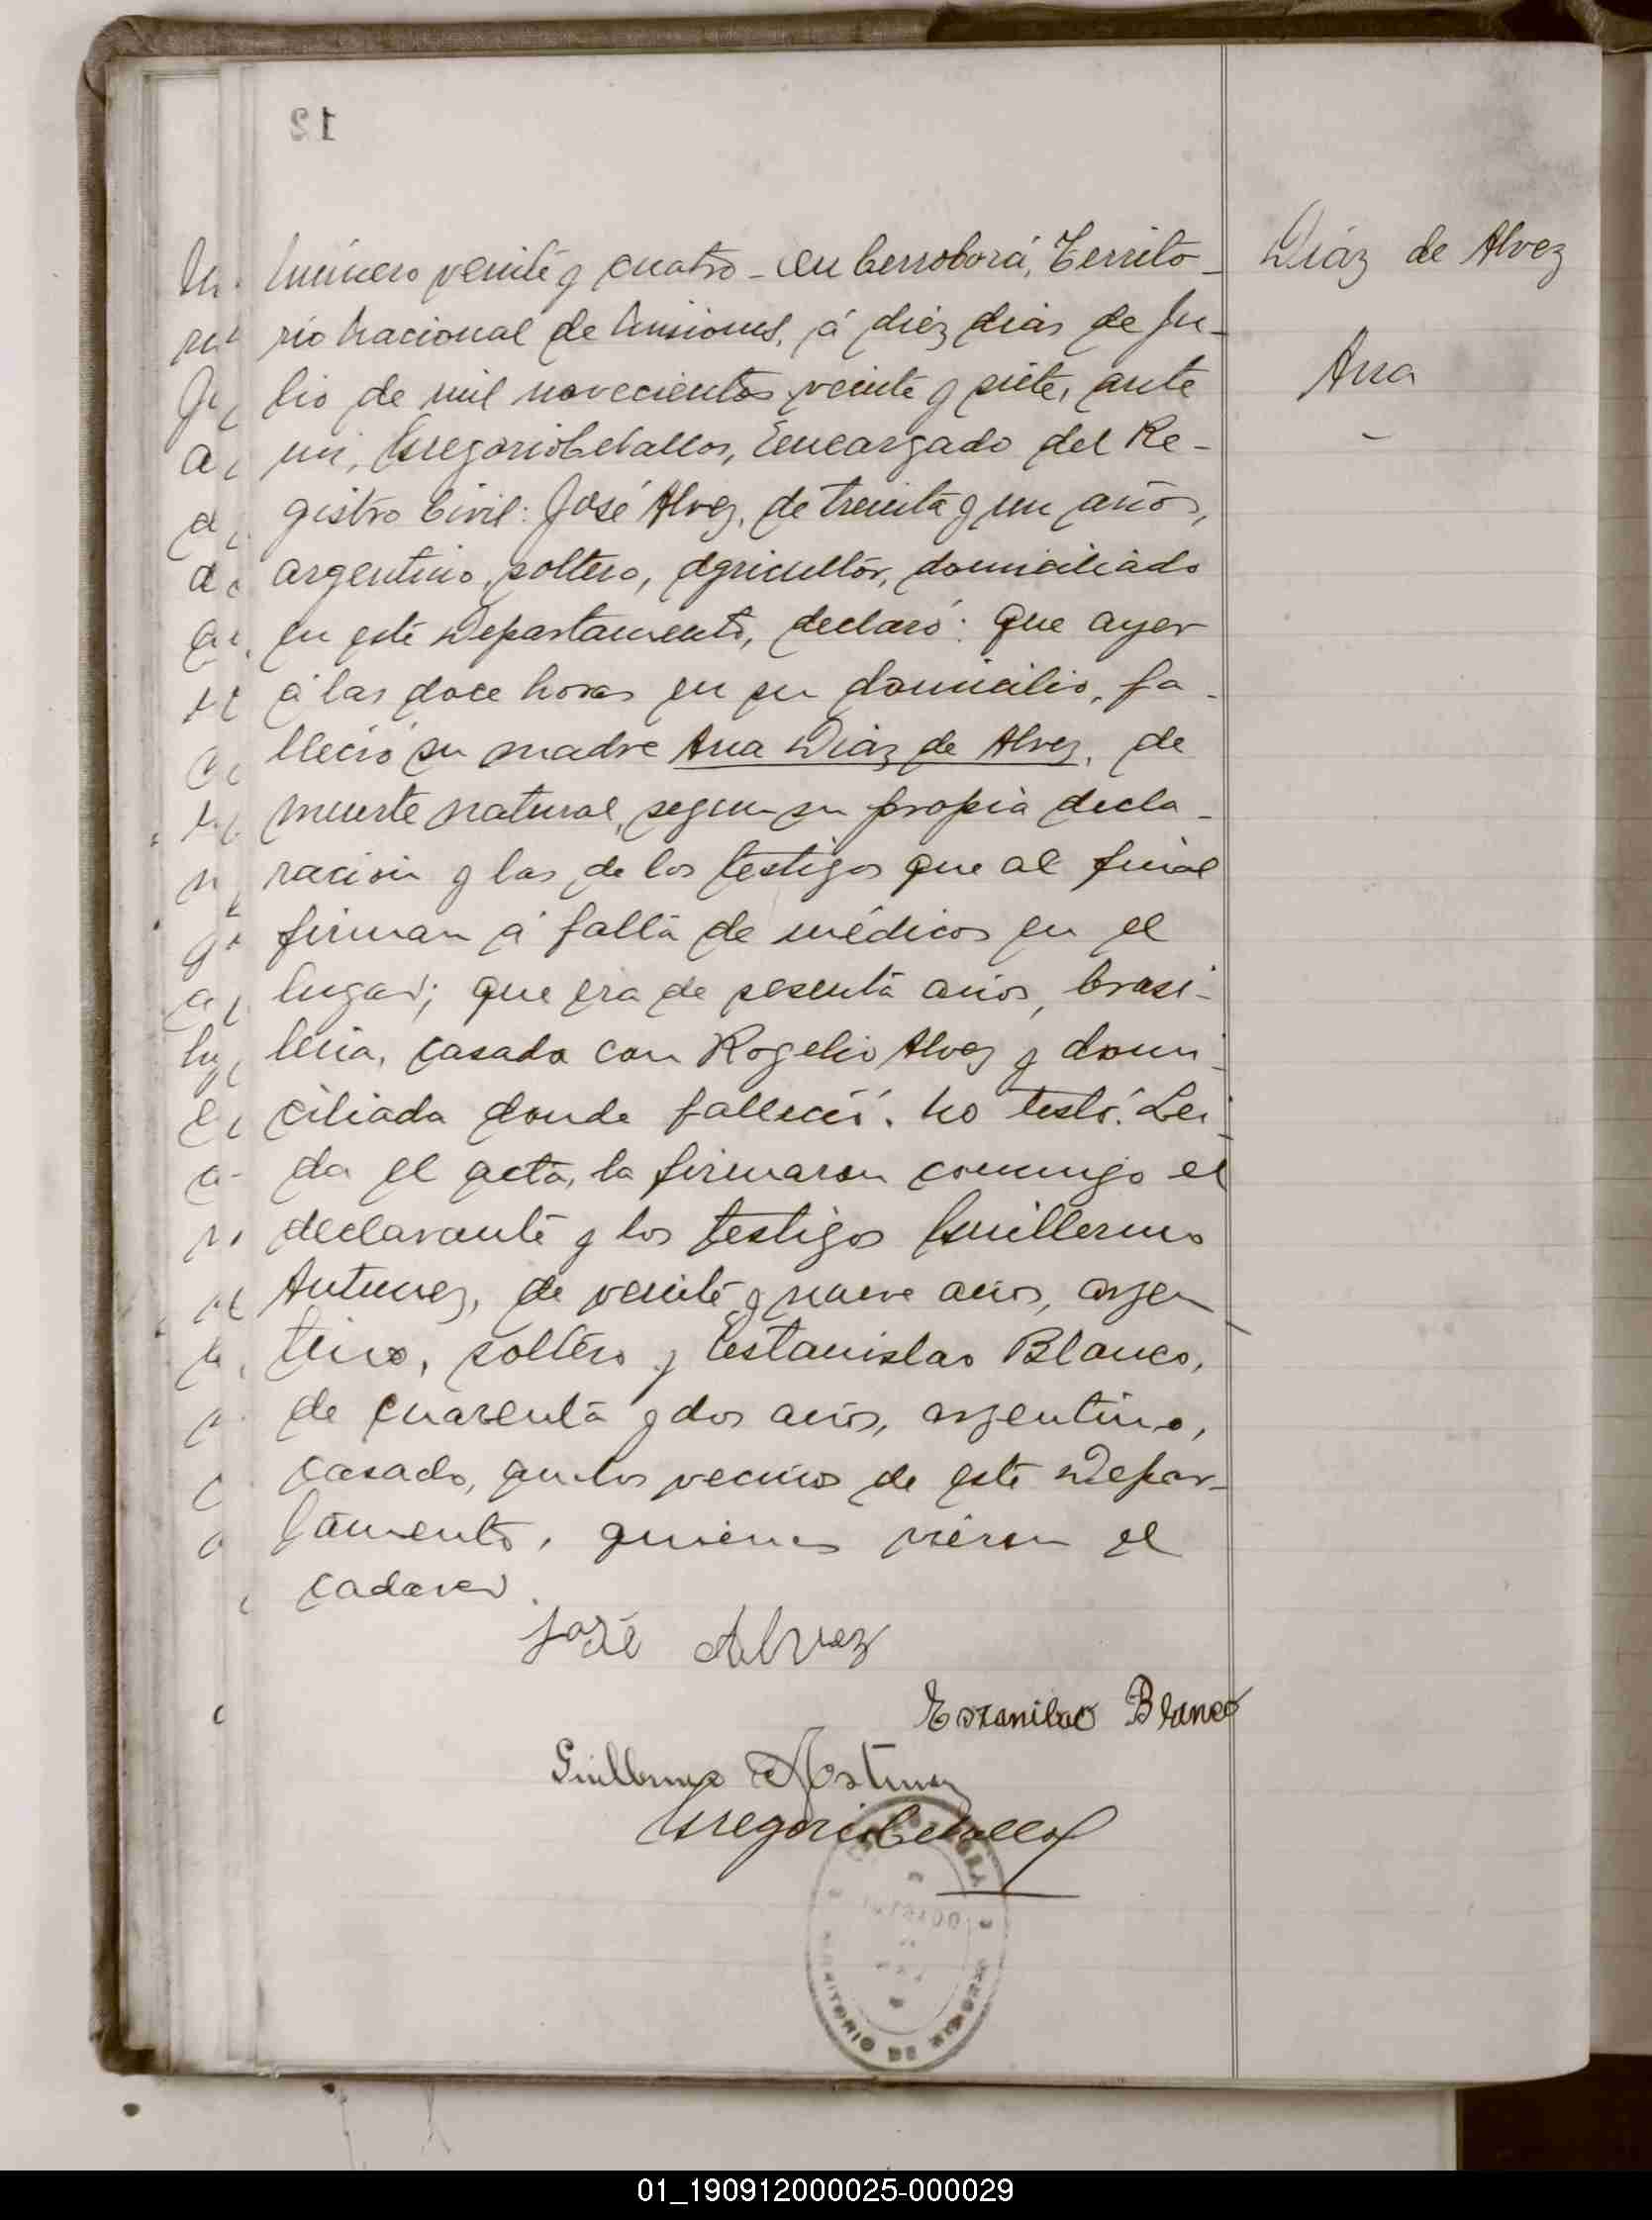 Número veinte y cuatro - En Cerrocorá, Territo-
rio Nacional de Misiones, á diez dias de Ju-
lio de mil novecientos veinte y siete, ante
mi, Gregorio Ceballos, Encargado del Re-
gistro Civil: José Alvez, de treinta y un años,
argentino, soltero, agricultor, domiciliado
en este Departamento, declaró: Que ayer
á las doce horas en su domicilio, fa-
lleció su madre Ana Diaz de Alvez, de
muerte natural, segun su propia decla-
racion y las de los testigos que al final
firman á falta de médicos en el
lugar; que era de sesenta años, brasi-
lera, casada con Rogelio Alvez y domi-
ciliada donde falleció. No testó. Lei-
da el acta, la firmaron conmigo el
declarante y los testigos Guillermo
Antunez, de veinte y nueve años, argen-
tino, soltero y Estanislao Blanco,
de cuarenta y dos años, argentino,
casado, ambos vecinos de este Depar-
tamento, quienes vieron el
cadaver.
Diáz de Alvez
Ana
José Alvez
Estanilao Blanco
Guillermo
Gregorio Ceballos
TERRITORIO DE MISIONES
12
01_190912000025-000029